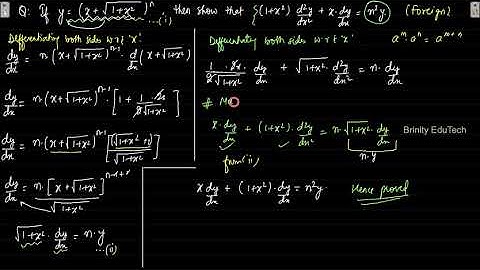 Q: If y = (x + √1+x²)ⁿ, ...(i) then show that {(1+x²) d²y/dx² + x·dy/dx = n²y} (Foreign)
Differentiating both sides w.r.t 'x':
dy/dx = n(x+√1+x²)ⁿ⁻¹ · d/dx (x+√1+x²)
dy/dx = n·(x+√1+x²)ⁿ⁻¹ · [1 + 1·2x/2√1+x²]
dy/dx = n·(x+√1+x²)ⁿ⁻¹ [(√1+x² + x)/√1+x²]
dy/dx = n·[x+√1+x²]ⁿ⁻¹⁺¹/√1+x²
√1+x² · dy/dx = n·y ...(ii)
Differentiating both sides w.r.t 'x':
aᵐ·aⁿ = aᵐ⁺ⁿ
1·2x/2√1+x² · dy/dx + √1+x² · d²y/dx² = n·dy/dx
x·dy/dx + (1+x²)·d²y/dx² = n·√1+x²·dy/dx
n·y
Brinity EduTech
from (ii),
x dy/dx + (1+x²)·dy/dx = n²y.
Hence proved